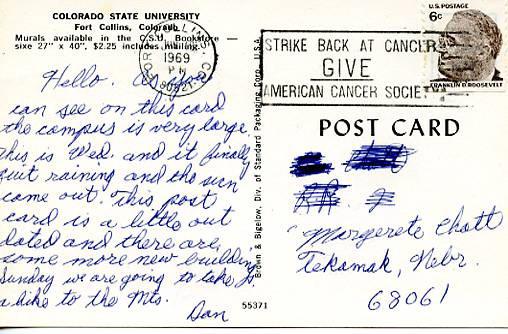 COLORADO STATE UNIVERSITY
Fort Collins, Colorado
Murals available in the C.S.U. Bookstore —
size 27" x 40", $2.25 includes mailing.
FORT COLLINS, CO
1969
PM
80521
STRIKE BACK AT CANCER
GIVE
AMERICAN CANCER SOCIETY
U.S. POSTAGE
6c
FRANKLIN D. ROOSEVELT
Hello. As you
can see on this card
the campus is very large.
This is Wed. and it finally
quit raining and the sun
came out. This post
card is a little out
dated and there are
some more new building
Sunday we are going to take
a hike to the Mts.
Dan
Brown & Bigelow, Div. of Standard Packaging Corp. U.S.A.
55371
POST CARD
RR 2
Margerete Chatt
Tekamak, Nebr.
68061